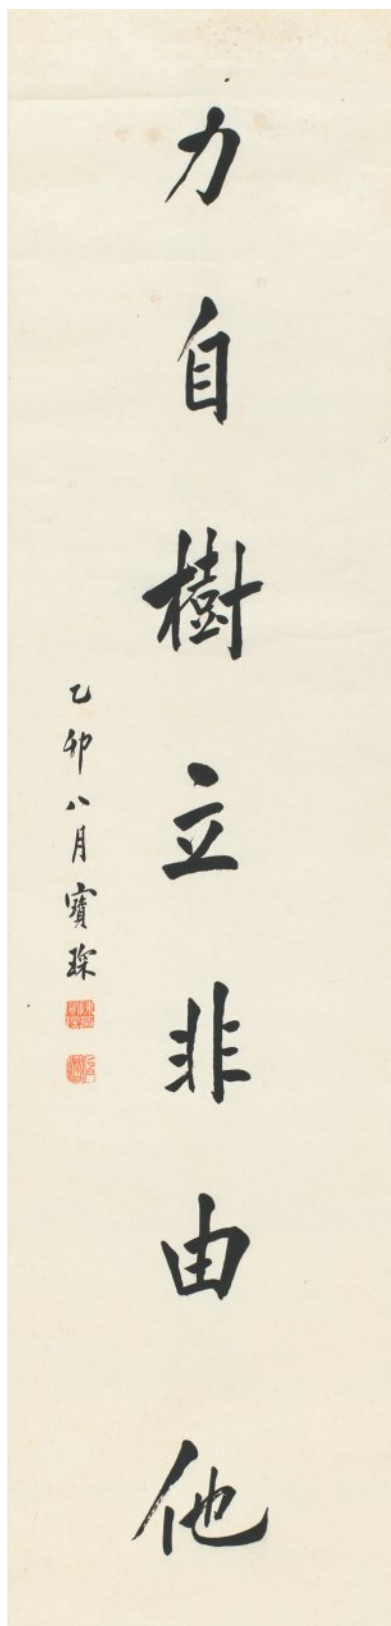 力自樹立非由他
乙卯八月寶琛